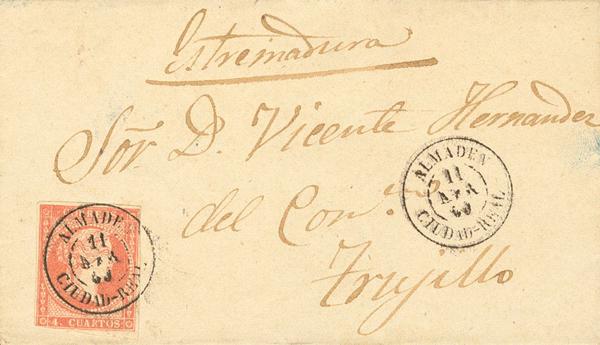 Estremadura
Sõr. D. Vicente Hernandez
del Com.º
Trujillo
ALMADEN
11
ABR
60
CIUDAD-REAL
ALMADEN
11
ABR
60
CIUDAD-REAL
4. CUARTOS